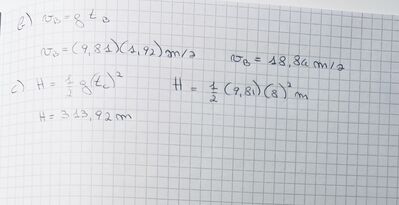 b) v_B = g t_B
v_B = (9,81)(1,92) m/s v_B = 18,84 m/s
c) H = 1/2 g(t_c)² H = 1/2 (9,81)(8)² m
H = 313,92 m